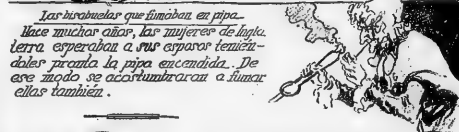 Las bisabuelas que fumaban en pipa.
Hace muchos años, las mujeres de Ingla-
terra esperaban a sus esposos tenién-
doles pronta la pipa encendida. De
ese modo se acostumbraron a fumar
ellas también.